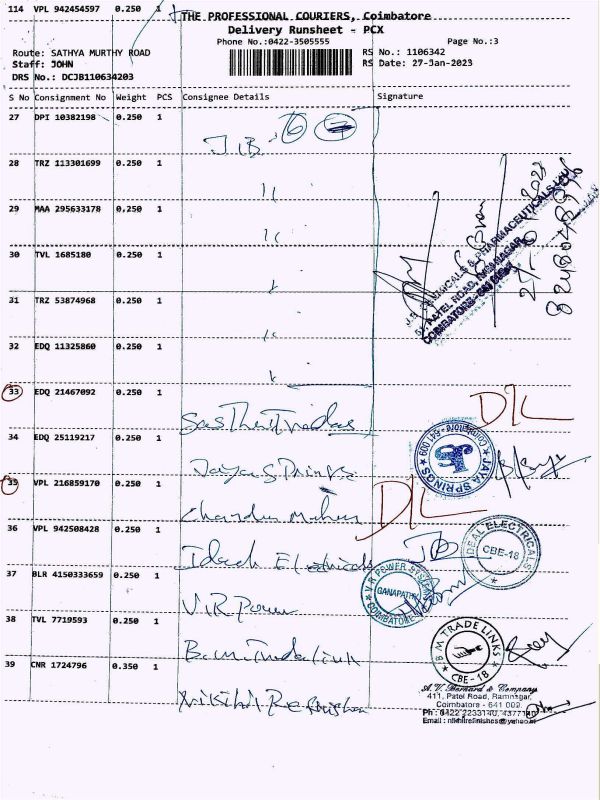 114 VPL 942454597 0.250 1
THE PROFESSIONAL COURIERS, Coimbatore
Delivery Runsheet - PCX
Phone No.:0422-3505555 Page No.:3
Route: SATHYA MURTHY ROAD RS No.: 1106342
Staff: JOHN RS Date: 27-Jan-2023
DRS No.: DCJB110634203
S No Consignment No Weight PCS Consignee Details Signature
27 DPI 10382198 0.250 1
J.B.
28 TRZ 113301699 0.250 1
29 MAA 295633178 0.250 1
30 TVL 1685180 0.250 1
31 TRZ 53874968 0.250 1
32 EDQ 11325860 0.250 1
33 EDQ 21467092 0.250 1
D/L
34 EDQ 25119217 0.250 1
Jaya Springs
JAYA SPRINGS COIMBATORE - 641 009
35 VPL 216859170 0.250 1
D/L
36 VPL 942508428 0.250 1
Ideal Electricals
IDEAL ELECTRICALS
CBE-18
37 BLR 4150333659 0.250 1
V.R Power
V.R POWER SYSTEMS
GANAPATHY
COIMBATORE
38 TVL 7719593 0.250 1
B M TRADE LINKS
CBE - 18
39 CNR 1724796 0.350 1
A. V. Bernard & Company
411, Patel Road, Ramnagar,
Coimbatore - 641 009.
Ph : 0422 2233140, 4377140
Email : nikhilrefinishes@yahoo.in
J.B. CHEMICALS & PHARMACEUTICALS LTD
PATEL ROAD, RAMNAGAR
COIMBATORE